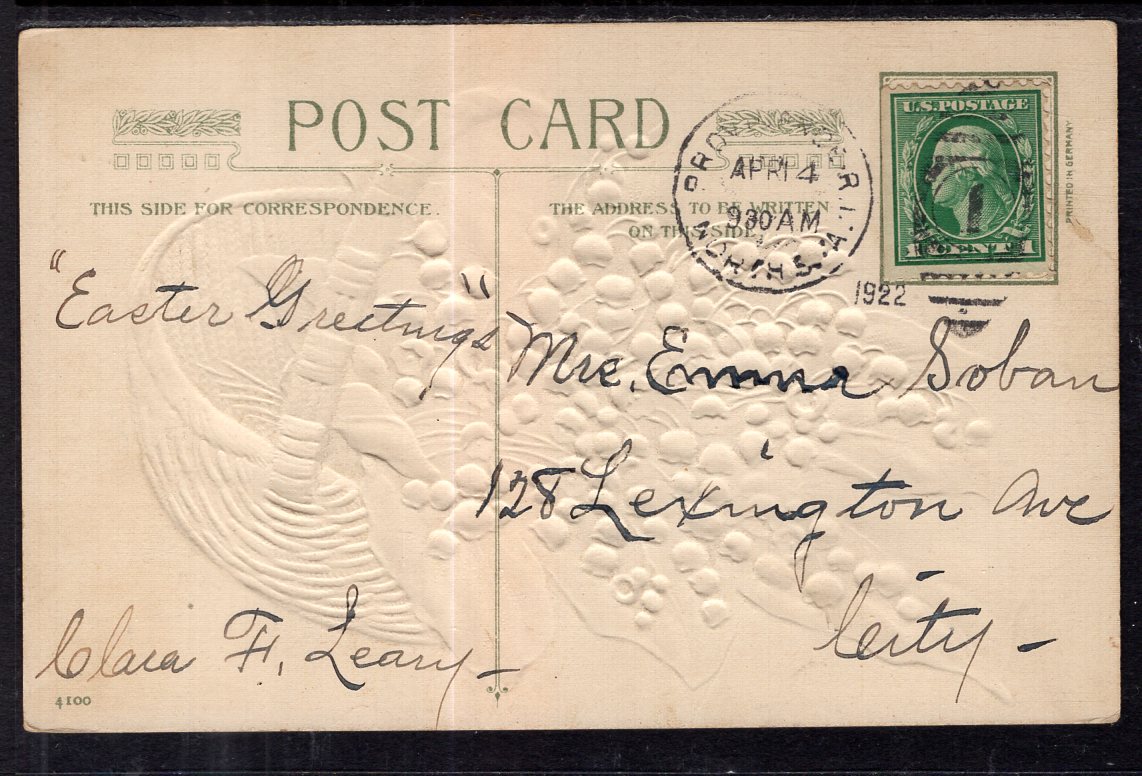 POST CARD
THIS SIDE FOR CORRESPONDENCE.
THE ADDRESS TO BE WRITTEN
ON THIS SIDE.
APR 14
930 AM
NORTH STA.
1922
U.S. POSTAGE
1 CENT 1
PRINTED IN GERMANY
"Easter Greetings"
Mrs. Emma Soban
128 Lexington Ave
City -
Clara F. Leary -
4100